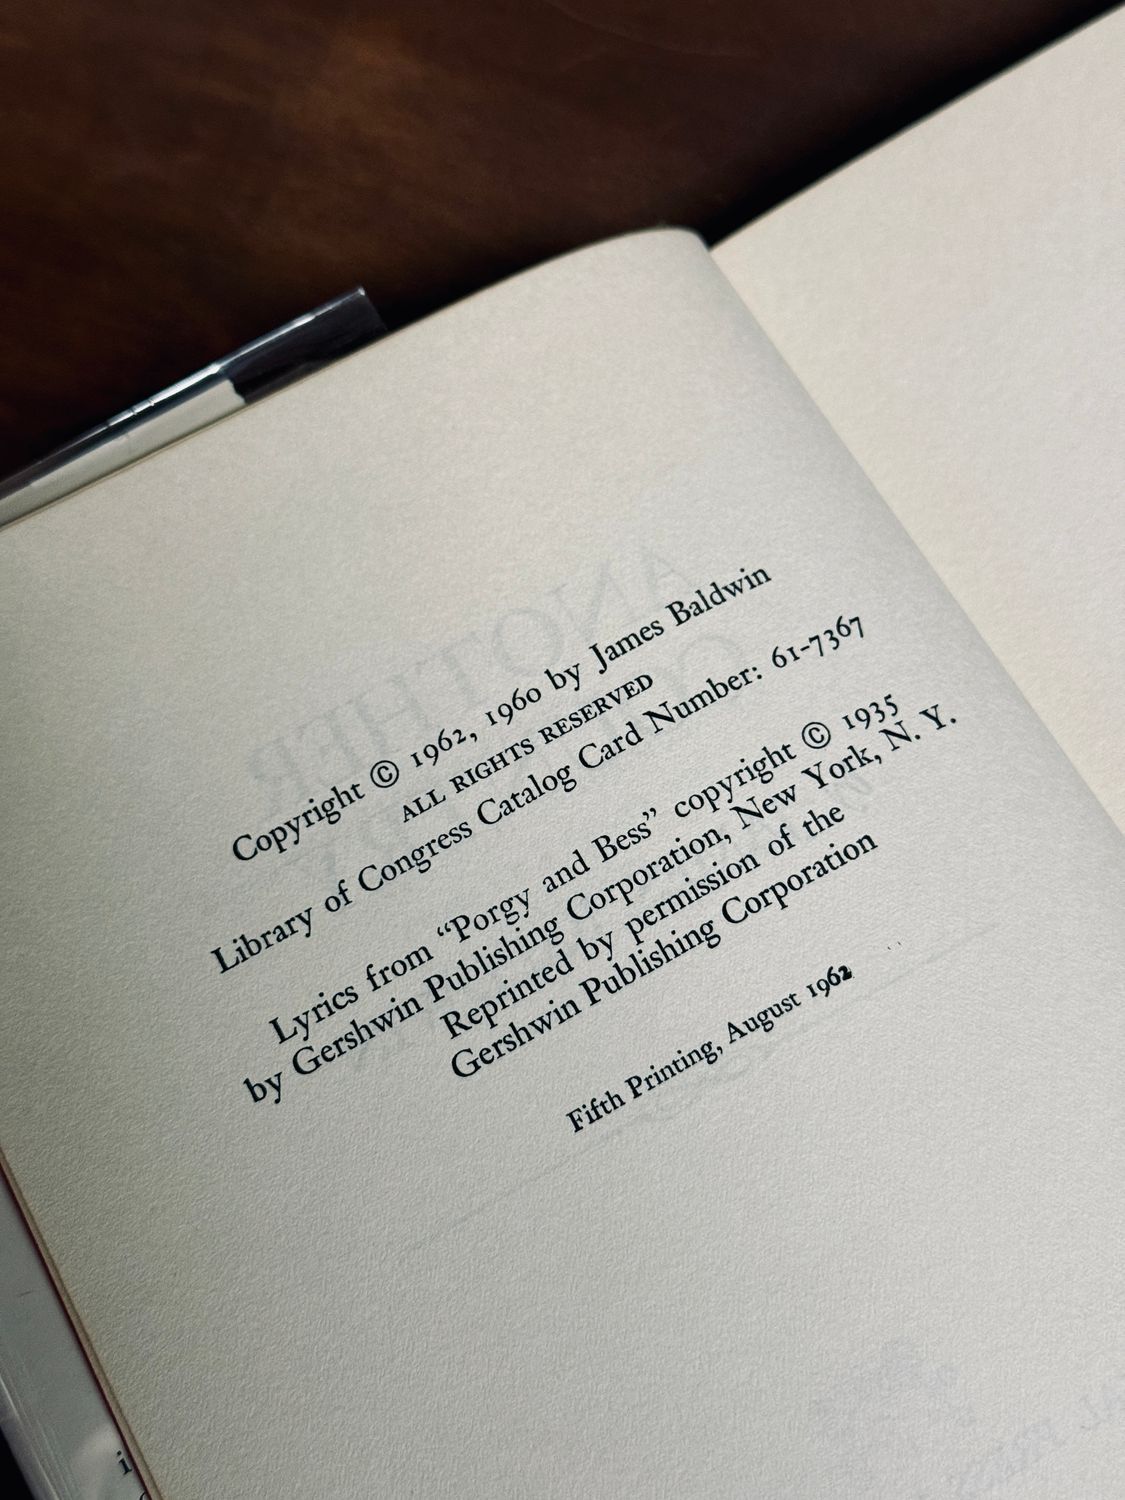 Copyright © 1962, 1960 by James Baldwin
ALL RIGHTS RESERVED
Library of Congress Catalog Card Number: 61-7367
Lyrics from “Porgy and Bess” copyright © 1935
by Gershwin Publishing Corporation, New York, N. Y.
Reprinted by permission of the
Gershwin Publishing Corporation
Fifth Printing, August 1962